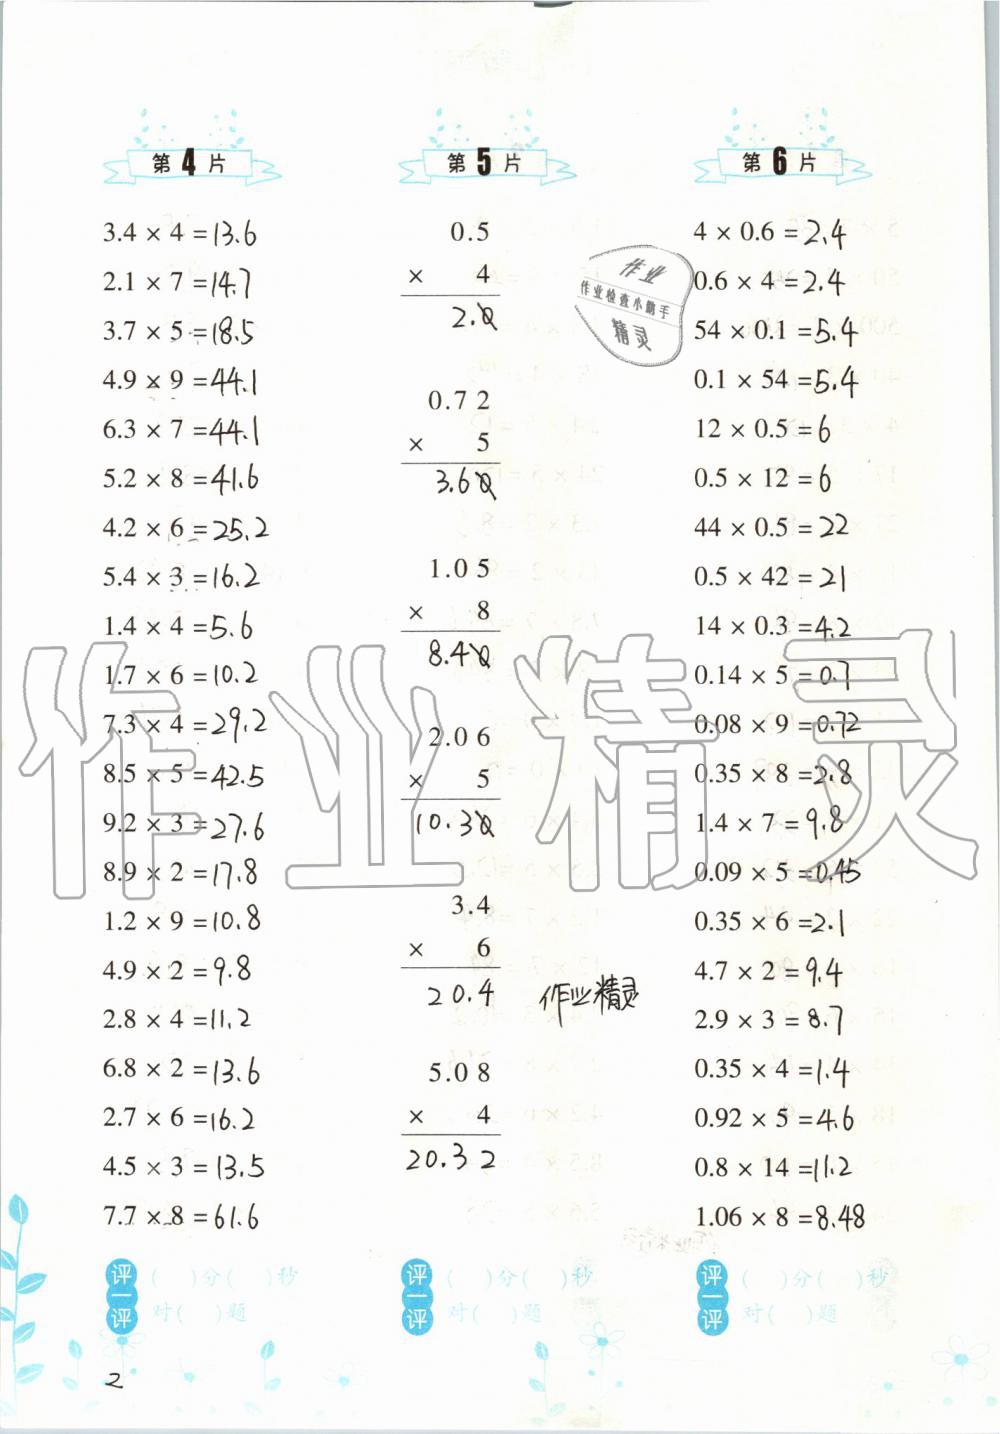 第4片
3.4 × 4 = 13.6
2.1 × 7 = 14.7
3.7 × 5 = 18.5
4.9 × 9 = 44.1
6.3 × 7 = 44.1
5.2 × 8 = 41.6
4.2 × 6 = 25.2
5.4 × 3 = 16.2
1.4 × 4 = 5.6
1.7 × 6 = 10.2
7.3 × 4 = 29.2
8.5 × 5 = 42.5
9.2 × 3 = 27.6
8.9 × 2 = 17.8
1.2 × 9 = 10.8
4.9 × 2 = 9.8
2.8 × 4 = 11.2
6.8 × 2 = 13.6
2.7 × 6 = 16.2
4.5 × 3 = 13.5
7.7 × 8 = 61.6
评一评
( )分( )秒
对( )题
第5片
0.5
× 4
2.0
0.72
× 5
3.60
1.05
× 8
8.40
2.06
× 5
10.30
3.4
× 6
20.4
作业精灵
5.08
× 4
20.32
评一评
( )分( )秒
对( )题
作业
作业检查小助手
精灵
第6片
4 × 0.6 = 2.4
0.6 × 4 = 2.4
54 × 0.1 = 5.4
0.1 × 54 = 5.4
12 × 0.5 = 6
0.5 × 12 = 6
44 × 0.5 = 22
0.5 × 42 = 21
14 × 0.3 = 4.2
0.14 × 5 = 0.7
0.08 × 9 = 0.72
0.35 × 8 = 2.8
1.4 × 7 = 9.8
0.09 × 5 = 0.45
0.35 × 6 = 2.1
4.7 × 2 = 9.4
2.9 × 3 = 8.7
0.35 × 4 = 1.4
0.92 × 5 = 4.6
0.8 × 14 = 11.2
1.06 × 8 = 8.48
评一评
( )分( )秒
对( )题
作业精灵
2